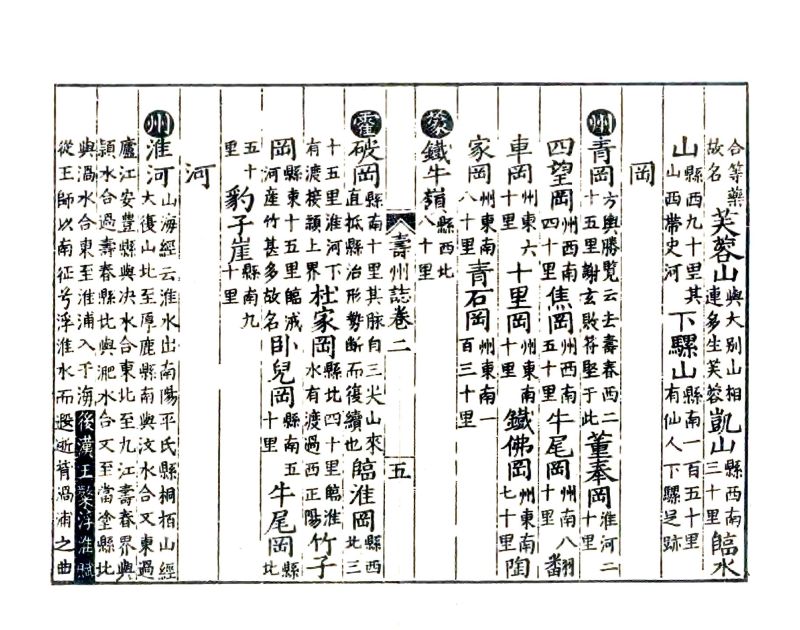 合等藥故名芙蓉山與大別山相連多生芙蓉凱山縣西南三十里臨水
山縣西九十里其山西帶史河下騾山縣南一百五十里有仙人下騾足跡
岡
州青岡方輿勝覧云去壽春西二十五里謝玄敗苻堅于此董奉岡淮河二十里
四望岡州西南四十里焦岡州西南五十里牛尾岡州南八十里翻
車岡州東六十里十里岡州東南十里鐵佛岡州東南七十里陶
家岡州東南八十里青石岡州東南一百三十里
蒙鐵牛嶺縣西北八十里
壽州誌卷二 五
霍破岡縣南十里其脉自三尖山來直抵縣治形勢斷而復續也臨淮岡縣西北三
十五里淮河下有渡接頴上界杜家岡縣北四十里臨淮水有渡過西正陽竹子
岡縣東十五里臨淠河産竹甚多故名卧兒岡縣南五十里牛尾岡縣北
五十里豹子崖縣南九十里
河
州淮河山海經云淮水出南陽平氏縣桐栢山經大復山北至原鹿縣南與汶水合又東過
廬江安豐縣與决水合東北至九江壽春界與頴水合過壽春縣北與淝水合又至當塗縣北
與渦水合東至淮浦入于海後漢王粲浮淮賦從王師以南征兮浮淮水而遐逝背渦浦之曲